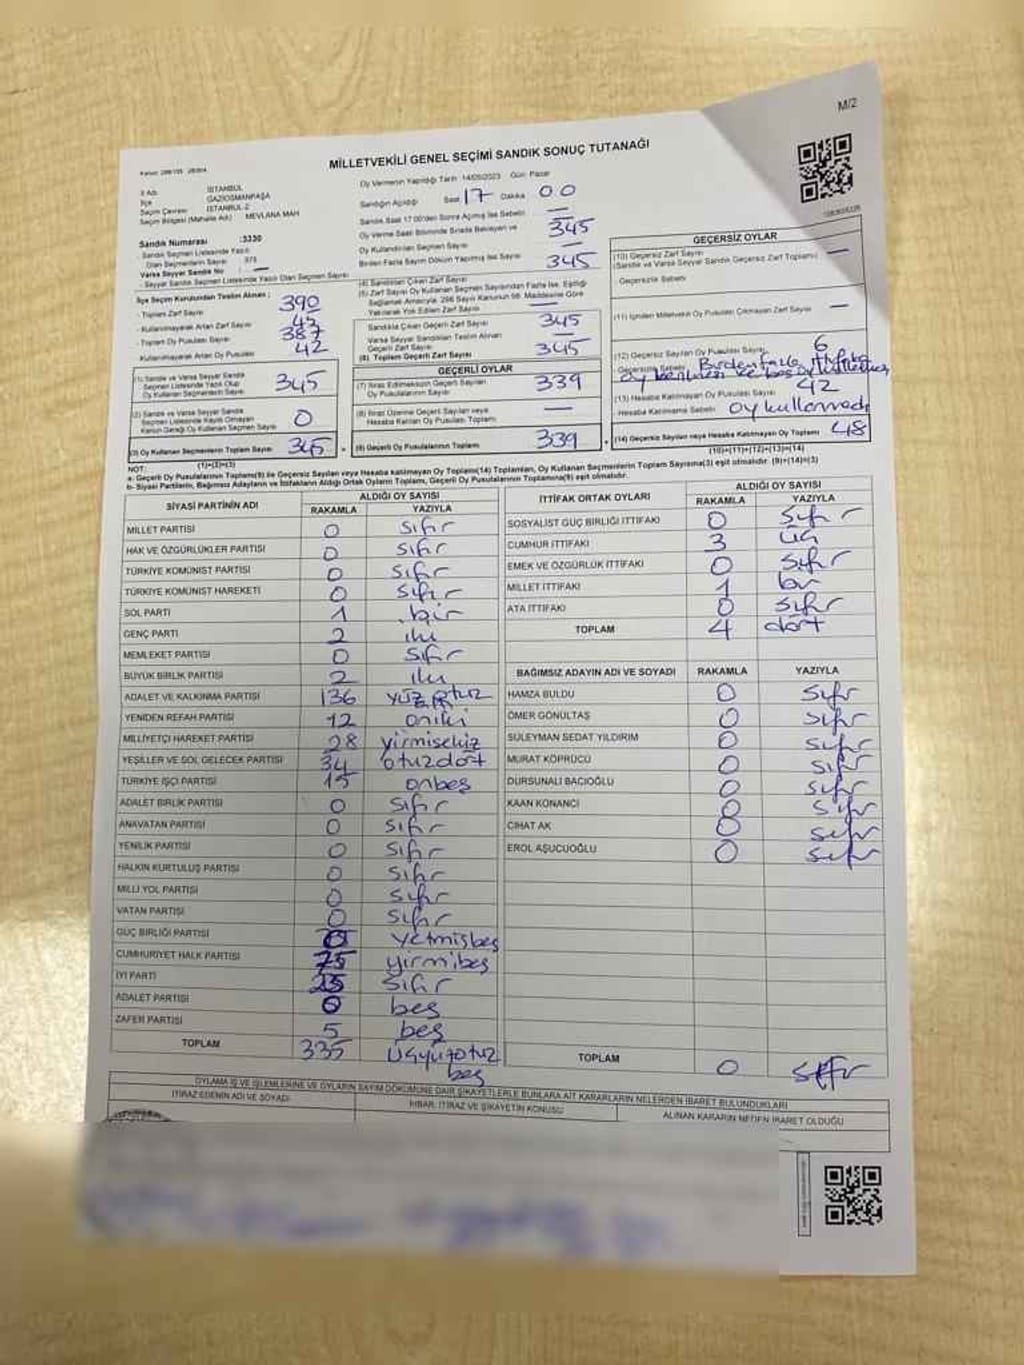 M/2
MİLLETVEKİLİ GENEL SEÇİMİ SANDIK SONUÇ TUTANAĞI
İl Adı İSTANBUL
İlçe GAZİOSMANPAŞA
Seçim Çevresi İSTANBUL-2
Seçim Bölgesi (Mahalle Adı) MEVLANA MAH
Sandık Numarası :3330
- Sandık Seçmen Listesinde Yazılı
Olan Seçmenlerin Sayısı
Varsa Seyyar Sandık No : —
- Seyyar Sandık Seçmen Listesinde Yazılı Olan Seçmen Sayısı
Oy Vermenin Yapıldığı Tarih 14/05/2023 Gün: Pazar
Sandığın Açıldığı Saat 17 Dakika 00
Sandık Saat 17.00'den Sonra Açılmış İse Sebebi —
Oy Verme Saati Bitiminde Sırada Bekleyen ve 345
Oy Kullandırılan Seçmen Sayısı —
Birden Fazla Sayım Döküm Yapılmış İse Sayısı 345
İlçe Seçim Kurulundan Teslim Alınan ;
- Toplam Zarf Sayısı 390
- Kullanılmayarak Artan Zarf Sayısı 45
- Toplam Oy Pusulası Sayısı 387
Kullanılmayarak Artan Oy Pusulası 42
(1) Sandık ve Varsa Seyyar Sandık
Seçmen Listesinde Yazılı Olup
Oy Kullanan Seçmenlerin Sayısı 345
(2) Sandık ve Varsa Seyyar Sandık
Seçmen Listesinde Kayıtlı Olmayan
Kanun Gereği Oy Kullanan Seçmen Sayısı 0
(3) Oy Kullanan Seçmenlerin Toplam Sayısı 345
(1)+(2)=(3)
(4) Sandıktan Çıkan Zarf Sayısı
(5) Zarf Sayısı Oy Kullanan Seçmen Sayısından Fazla İse, Eşitliği
Sağlamak Amacıyla, 298 Sayılı Kanunun 98. Maddesine Göre
Yakılarak Yok Edilen Zarf Sayısı —
Sandıkta Çıkan Geçerli Zarf Sayısı 345
Varsa Seyyar Sandıktan Teslim Alınan
Geçerli Zarf Sayısı —
(6) Toplam Geçerli Zarf Sayısı 345
GEÇERLİ OYLAR
(7) İtiraz Edilmeksizin Geçerli Sayılan
Oy Pusulalarının Sayısı 339
(8) İtiraz Üzerine Geçerli Sayılan veya
Hesaba Katılan Oy Pusulası Toplamı —
(9) Geçerli Oy Pusulalarının Toplamı 339
GEÇERSİZ OYLAR
(10) Geçersiz Zarf Sayısı
(Sandık ve Varsa Seyyar Sandık Geçersiz Zarf Toplamı) —
Geçersizlik Sebebi
(11) İçinden Milletvekili Oy Pusulası Çıkmayan Zarf Sayısı —
(12) Geçersiz Sayılan Oy Pusulası Sayısı 6
Geçersizlik Sebebi Birden fazla
(13) Hesaba Katılmayan Oy Pusulası Sayısı 42
Hesaba Katılmama Sebebi oy kullanmadı
(14) Geçersiz Sayılan veya Hesaba Katılmayan Oy Toplamı 48
(10)+(11)+(12)+(13)=(14)
NOT:
a- Geçerli Oy Pusulalarının Toplamı(9) ile Geçersiz Sayılan veya Hesaba katılmayan Oy Toplamı(14) Toplamları, Oy Kullanan Seçmenlerin Toplam Sayısına(3) eşit olmalıdır. (9)+(14)=(3)
b- Siyasi Partilerin, Bağımsız Adayların ve İttifakların Aldığı Ortak Oyların Toplamı, Geçerli Oy Pusulalarının Toplamına(9) eşit olmalıdır.
SİYASİ PARTİNİN ADI ALDIĞI OY SAYISI
RAKAMLA YAZIYLA
MİLLET PARTİSİ 0 sıfır
HAK VE ÖZGÜRLÜKLER PARTİSİ 0 sıfır
TÜRKİYE KOMÜNİST PARTİSİ 0 sıfır
TÜRKİYE KOMÜNİST HAREKETİ 0 sıfır
SOL PARTİ 1 bir
GENÇ PARTİ 2 iki
MEMLEKET PARTİSİ 0 sıfır
BÜYÜK BİRLİK PARTİSİ 2 iki
ADALET VE KALKINMA PARTİSİ 136
YENİDEN REFAH PARTİSİ 12 oniki
MİLLİYETÇİ HAREKET PARTİSİ 28 yirmisekiz
YEŞİLLER VE SOL GELECEK PARTİSİ 34 otuzdört
TÜRKİYE İŞÇİ PARTİSİ 15 onbeş
ADALET BİRLİK PARTİSİ 0 sıfır
ANAVATAN PARTİSİ 0 sıfır
YENİLİK PARTİSİ 0 sıfır
HALKIN KURTULUŞ PARTİSİ 0 sıfır
MİLLİ YOL PARTİSİ 0 sıfır
VATAN PARTİSİ 0 sıfır
GÜÇ BİRLİĞİ PARTİSİ 0 yetmişbeş
CUMHURİYET HALK PARTİSİ 75 yirmibeş
İYİ PARTİ 25 sıfır
ADALET PARTİSİ 0 beş
ZAFER PARTİSİ 5 beş
TOPLAM 335 üçyüzotuz
beş
İTTİFAK ORTAK OYLARI ALDIĞI OY SAYISI
RAKAMLA YAZIYLA
SOSYALİST GÜÇ BİRLİĞİ İTTİFAKI 0 sıfır
CUMHUR İTTİFAKI 3 üç
EMEK VE ÖZGÜRLÜK İTTİFAKI 0 sıfır
MİLLET İTTİFAKI 1 bir
ATA İTTİFAKI 0 sıfır
TOPLAM 4 dört
BAĞIMSIZ ADAYIN ADI VE SOYADI RAKAMLA YAZIYLA
HAMZA BULDU 0 sıfır
ÖMER GÖNÜLTAŞ 0 sıfır
SÜLEYMAN SEDAT YILDIRIM 0 sıfır
MURAT KÖPRÜCÜ 0 sıfır
DURSUNALİ BACIOĞLU 0 sıfır
KAAN KONANCI 0 sıfır
CİHAT AK 0 sıfır
EROL AŞUCUOĞLU 0 sıfır
TOPLAM 0 sıfır
OYLAMA İŞ VE İŞLEMLERİNE VE OYLARIN SAYIM DÖKÜMÜNE DAİR ŞİKAYETLERLE BUNLARA AİT KARARLARIN NELERDEN İBARET BULUNDUKLARI
İTİRAZ EDENİN ADI VE SOYADI İHBAR, İTİRAZ VE ŞİKAYETİN KONUSU ALINAN KARARIN NEDEN İBARET OLDUĞU